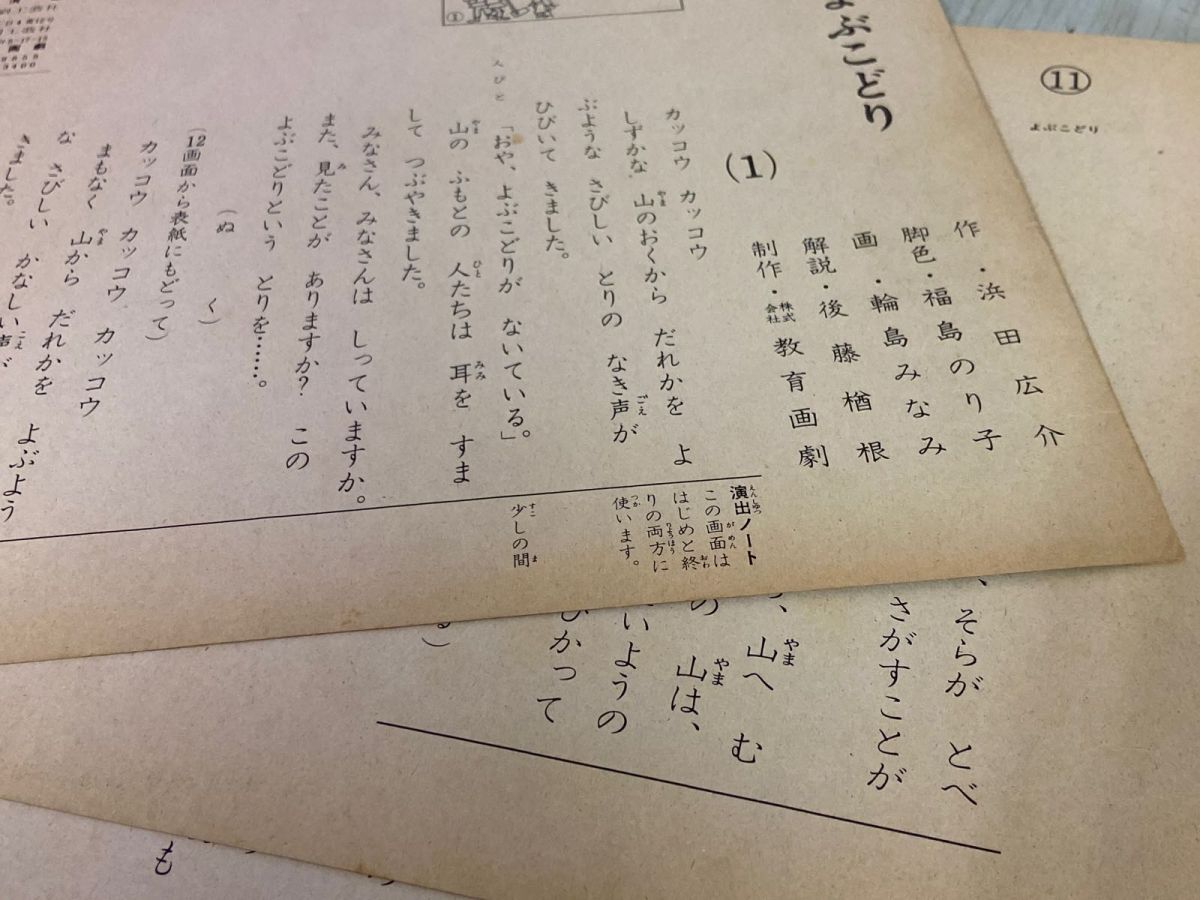 よぶこどり
(1)
作・浜田広介
脚色・福島のり子
画・輪島みなみ
解説・後藤楢根
制作・株式会社教育画劇
カッコウ カッコウ
しずかな 山のおくから だれかを よ
ぶような さびしい とりの なき声が
ひびいて きました。
「おや、よぶこどりが ないている。」
山の ふもとの 人たちは 耳を すま
して つぶやきました。
みなさん、みなさんは しっていますか。
また、見たことが ありますか? この
よぶこどりという とりを……。
(ぬく)
(12画面から表紙にもどって)
カッコウ カッコウ カッコウ
まもなく 山から だれかを よぶよう
な さびしい かなしい声が
きました。
演出ノート
この画面は
はじめと終
りの両方に
使います。
少しの間
①
⑪
よぶこどり
、そらが とべ
さがすことが
、山へ む
の 山は、
いようの
ひかって
も